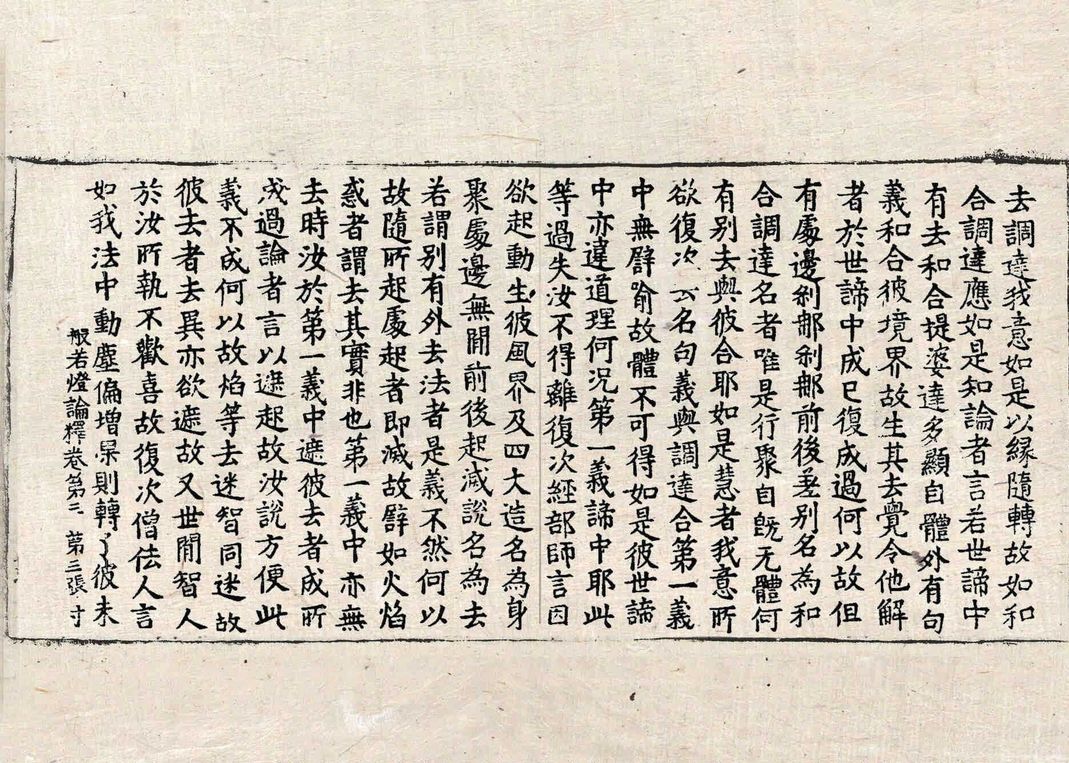 去調達我意如是以緣隨轉故如和
合調達應如是知論者言若世諦中
有去和合提婆達多顯自體外有句
義和合彼境界故生其去覺令他解
者於世諦中成已復成過何以故但
有處邊刹那刹那前後差別名為和
合調達名者唯是行聚自既无體何
有別去與彼合耶如是慧者我意所
欲復次去名句義與調達合第一義
中無譬喻故體不可得如是彼世諦
中亦違道理何況第一義諦中耶此
等過失汝不得離復次經部師言因
欲起動生彼風界及四大造名為身
聚處邊無間前後起滅說名為去
若謂別有外去法者是義不然何以
故隨所起處起者即滅故譬如火焰
惑者謂去其實非也第一義中亦無
去時汝於第一義中遮彼去者成所
成過論者言以遮起故汝說方便此
義不成何以故焰等去迷智同迷故
彼去者去異亦欲遮故又世間智人
於汝所執不歡喜故復次僧佉人言
如我法中動塵偏增果則轉了彼未
般若燈論釋卷第三 第三張 寸